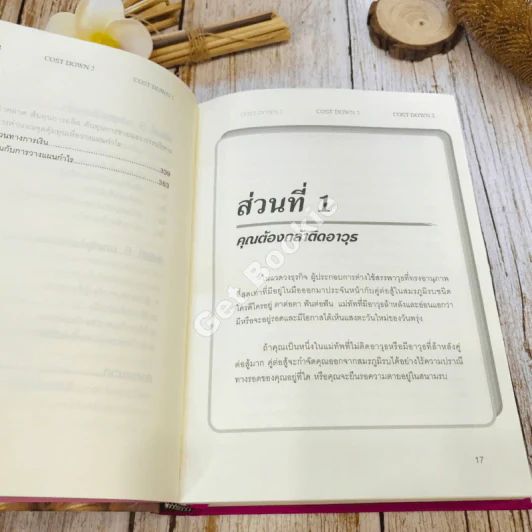 COST DOWN 3
COST DOWN 3
วนทางการเงิน
นกับการวางแผนกำไร
359
363
COST DOWN 3
COST DOWN 3
COST DOWN 3
ส่วนที่ 1
คุณต้องกล้าติดอาวุธ
ในแวดวงธุรกิจ ผู้ประกอบการต่างใช้สรรพาวุธที่ทรงอานุภาพ
ที่สุดเท่าที่มีอยู่ในมือออกมาประจันหน้ากับคู่ต่อสู้ในสมรภูมิรบชนิด
ใครดีใครอยู่ ตาต่อตา ฟันต่อฟัน แม่ทัพที่มีอาวุธล้าหลังและอ่อนแอกว่า
มีหรือจะอยู่รอดและมีโอกาสได้เห็นแสงตะวันใหม่ของวันพรุ่ง
ถ้าคุณเป็นหนึ่งในแม่ทัพที่ไม่ติดอาวุธหรือมีอาวุธที่ล้าหลังคู่
ต่อสู้มาก คู่ต่อสู้จะกำจัดคุณออกจากสมรภูมิรบได้อย่างไร้ความปรานี
ทางรอดของคุณอยู่ที่ใด หรือคุณจะยืนรอความตายอยู่ในสนามรบ
17
Get Bookie